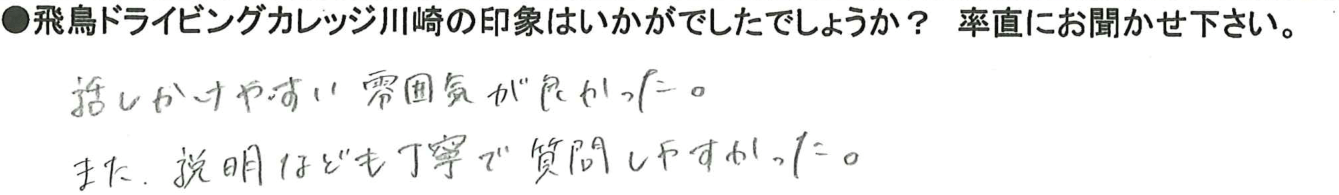 ●飛鳥ドライビングカレッジ川崎の印象はいかがでしたでしょうか？ 率直にお聞かせ下さい。
話しかけやすい雰囲気が良かった。
また、説明なども丁寧で質問しやすかった。